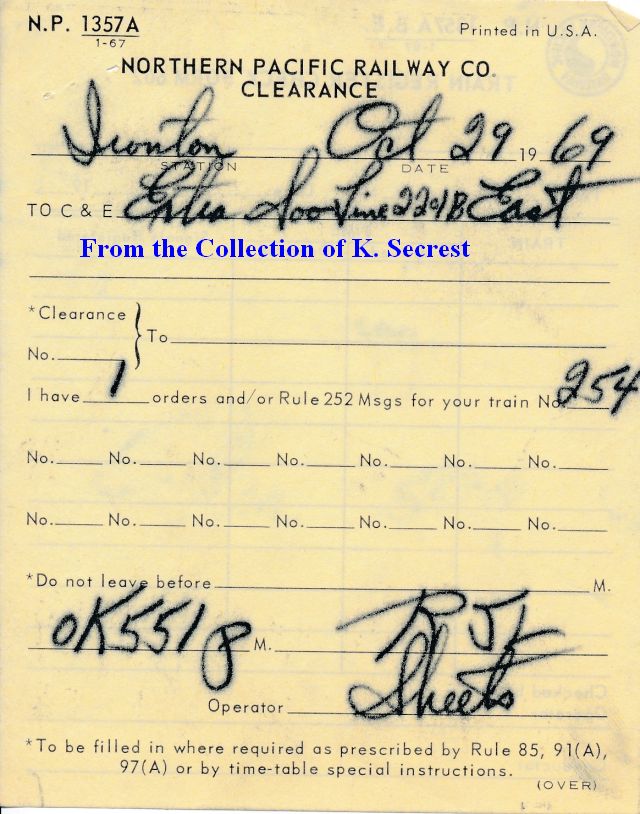 N.P. 1357A
1-67
Printed in U.S.A.
NORTHERN PACIFIC RAILWAY CO.
CLEARANCE
Ironton Oct 29 19 69
STATION DATE
TO C & E Extra Soo Line 2291B East
From the Collection of K. Secrest
*Clearance
No. To
I have 1 orders and/or Rule 252 Msgs for your train No. 254
No. No. No. No. No. No. No.
No. No. No. No. No. No. No.
*Do not leave before M.
OK 551 p M.
Operator Sheets
*To be filled in where required as prescribed by Rule 85, 91(A),
97(A) or by time-table special instructions.
(OVER)